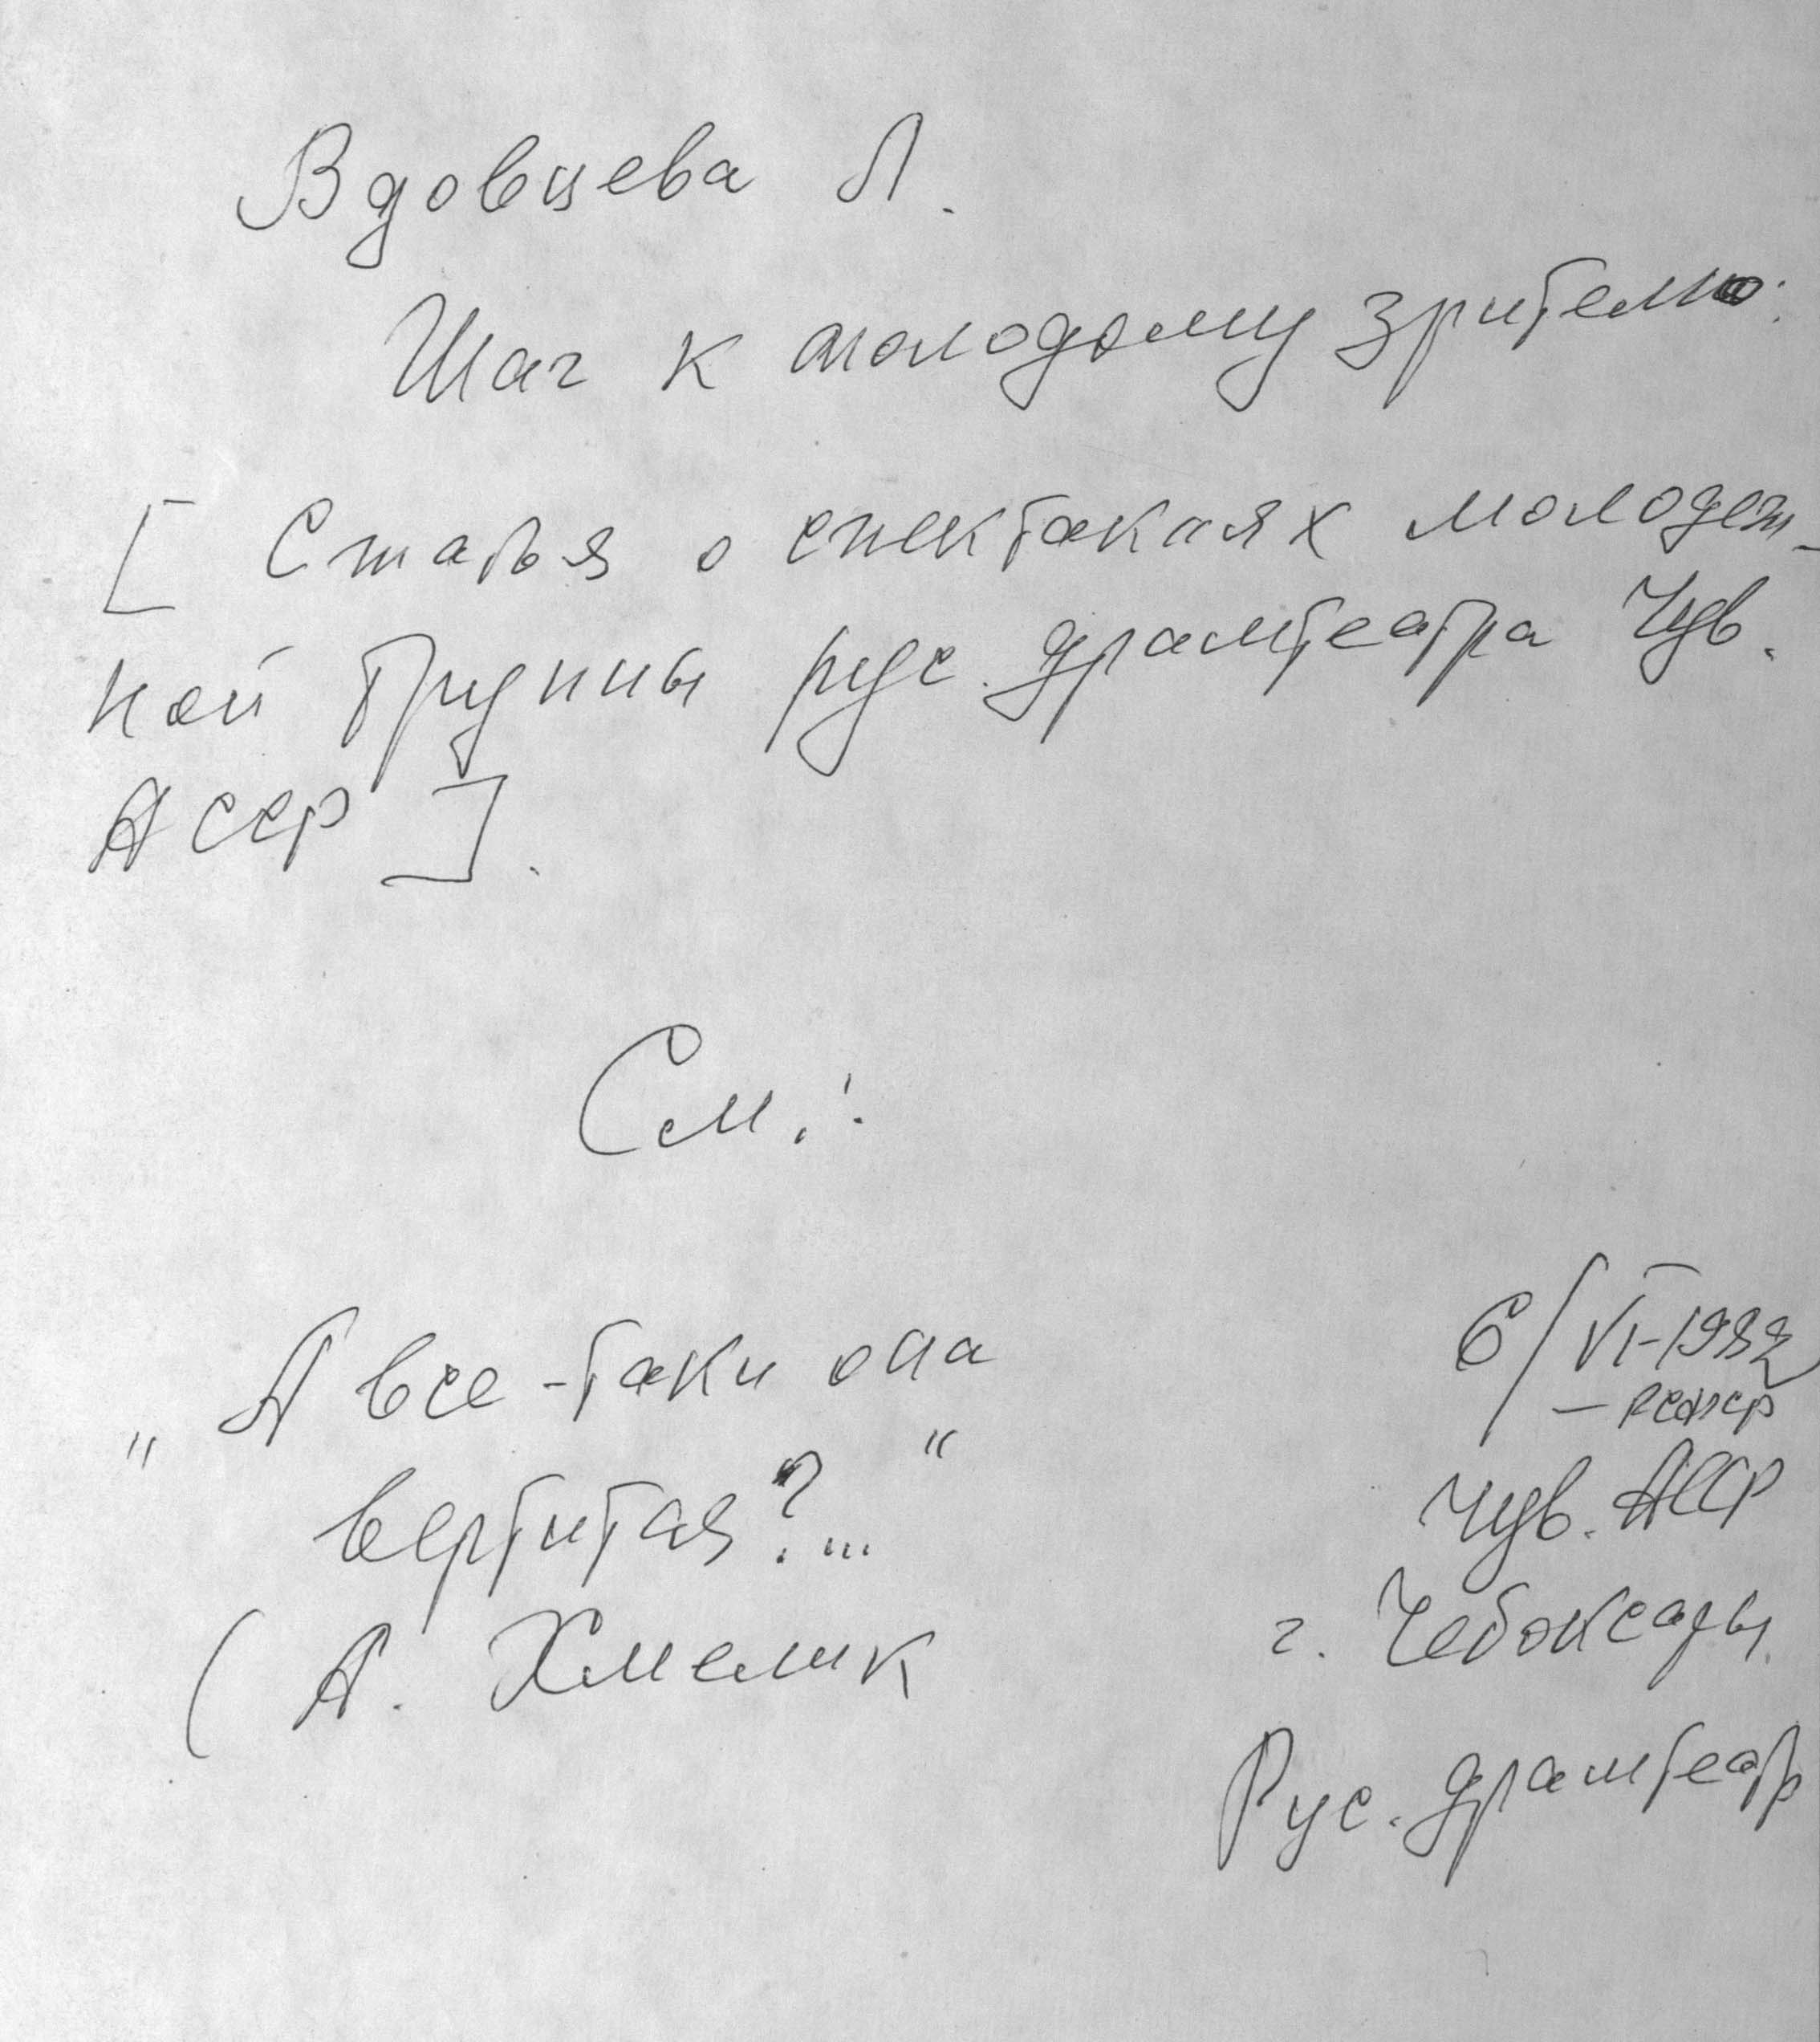 Вдовцева Л.
Шаг к молодому зрителю:
[ Статья о спектаклях молодеж-
ной группы рус. драмтеатра Чув.
АССР ].
См.:
„ А все-таки она
вертится?... “
( А. Хмелик
6/VI-1982
Чув. АССР
г. Чебоксары.
Рус. драмтеатр